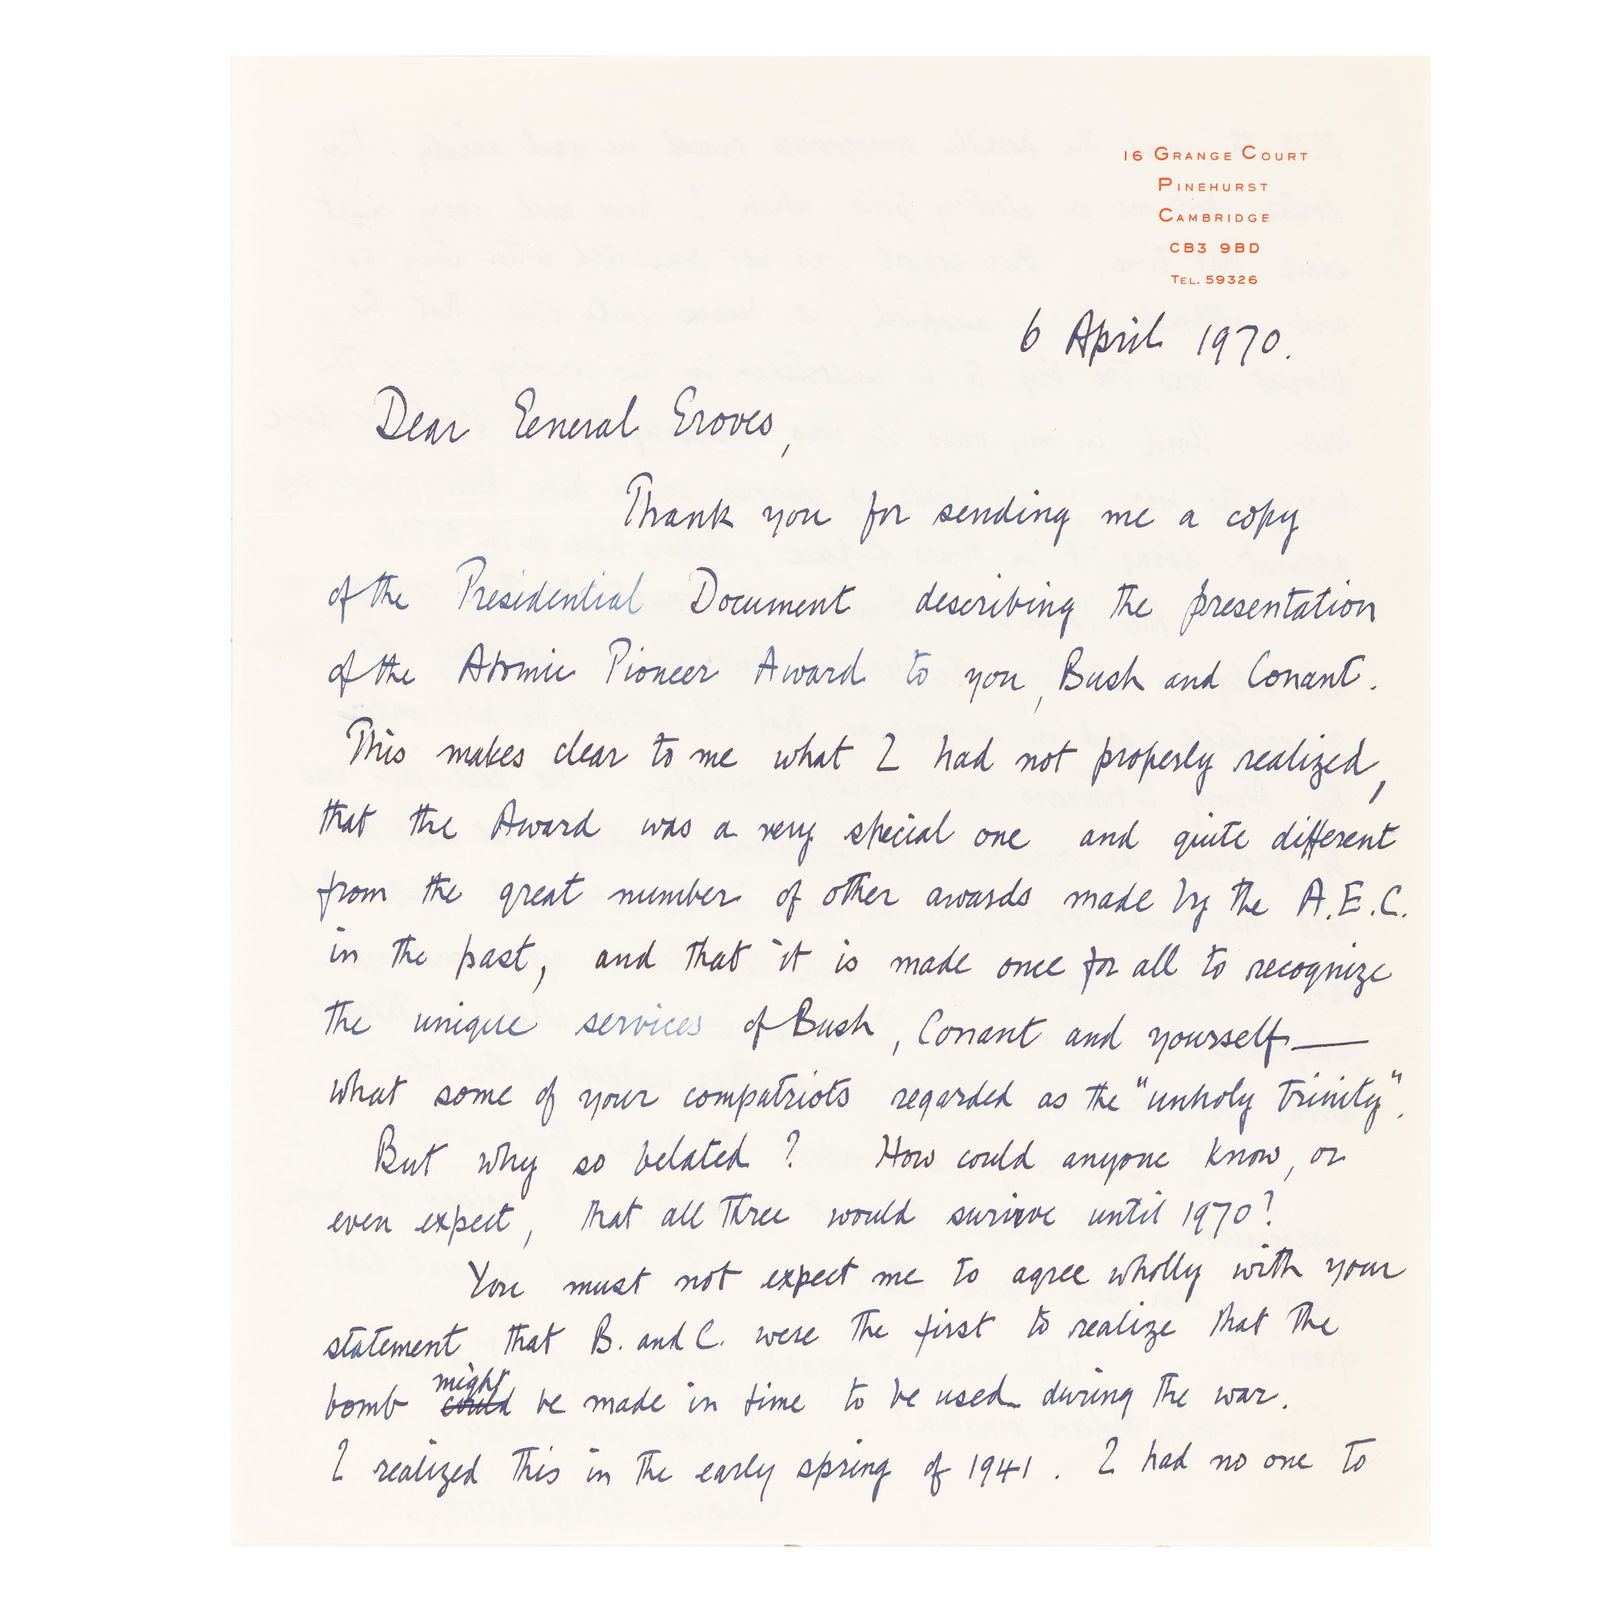 16 GRANGE COURT
PINEHURST
CAMBRIDGE
CB3 9BD
TEL. 59326
6 April 1970.
Dear General Groves,
Thank you for sending me a copy
of the Presidential Document describing the presentation
of the Atomic Pioneer Award to you, Bush and Conant.
This makes clear to me what I had not properly realized,
that the Award was a very special one and quite different
from the great number of other awards made by the A.E.C.
in the past, and that it is made once for all to recognize
the unique services of Bush, Conant and yourself —
what some of your compatriots regarded as the "unholy trinity".
But why so belated? How could anyone know, or
even expect, that all three would survive until 1970?
You must not expect me to agree wholly with your
statement that B. and C. were the first to realize that the
might
bomb could be made in time to be used during the war.
I realized this in the early spring of 1941. I had no one to